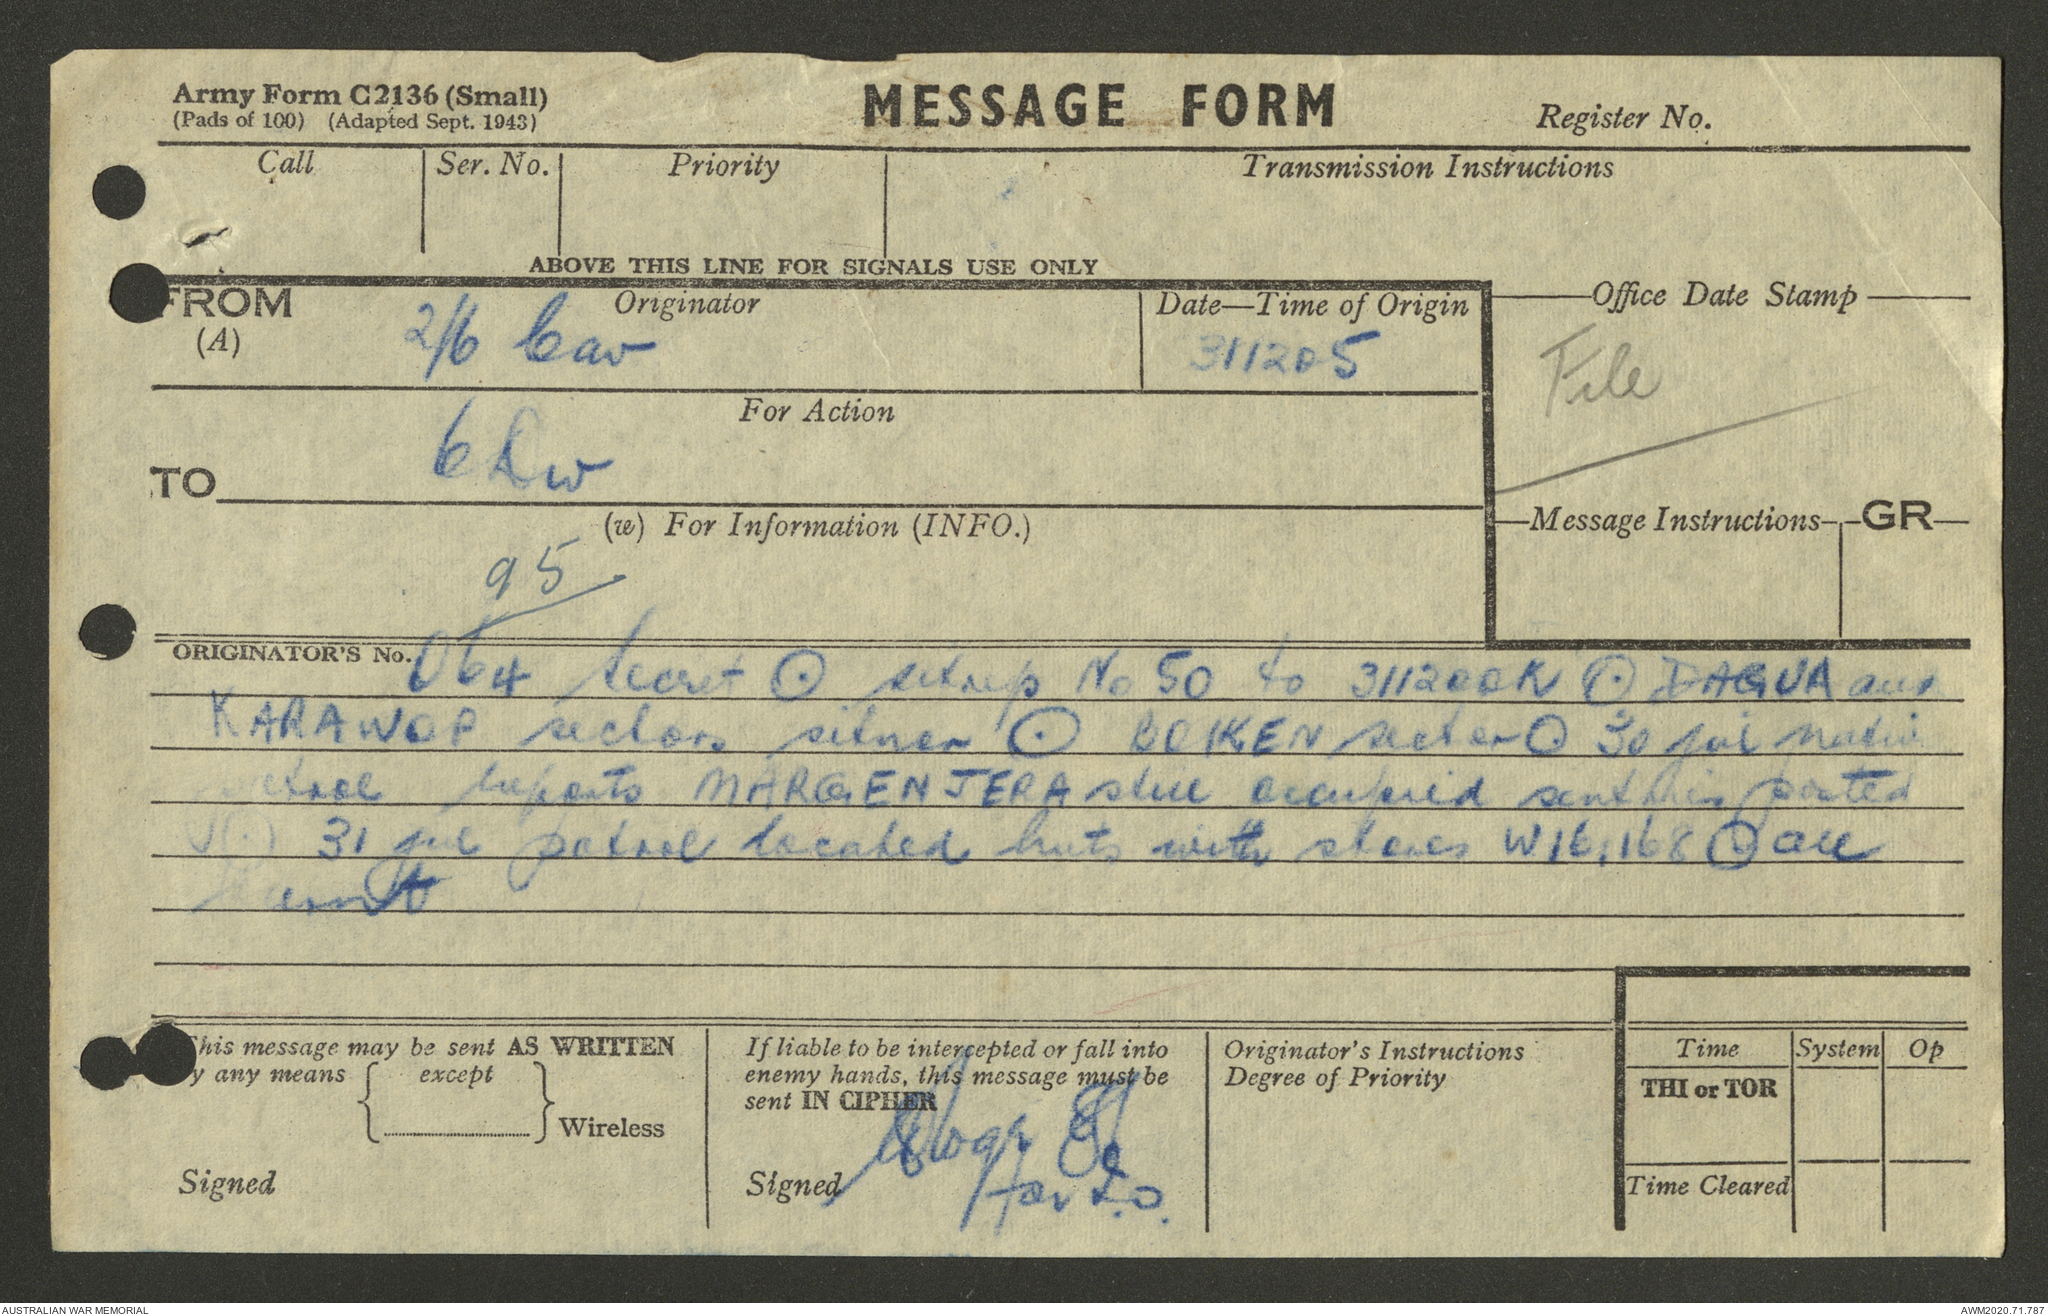 Army Form C2136 (Small)
(Pads of 100) (Adapted Sept. 1943)
MESSAGE FORM
Register No.
Call
Ser. No.
Priority
Transmission Instructions
ABOVE THIS LINE FOR SIGNALS USE ONLY
FROM
(A)
Originator
2/6 Cav
Date—Time of Origin
311205
Office Date Stamp
File
For Action
TO
6 Div
(w) For Information (INFO.)
95
Message Instructions
GR
ORIGINATOR'S No.
O64 Secret ⊙ sitrep No 50 to 311200K ⊙ DAGUA and
KARAWOP sectors sitnor ⊙ BOIKEN sector ⊙ 30 jul native
patrol reports MARGENJERA still occupied sentries posted
(.) 31 jul patrol located huts with stores W16,168 ⊙ all
burnt
This message may be sent AS WRITTEN
by any means except
Wireless
Signed
If liable to be intercepted or fall into
enemy hands, this message must be
sent IN CIPHER
Signed
for I.O.
Originator's Instructions
Degree of Priority
Time
System
Op
THI or TOR
Time Cleared
AUSTRALIAN WAR MEMORIAL
AWM2020.71.787